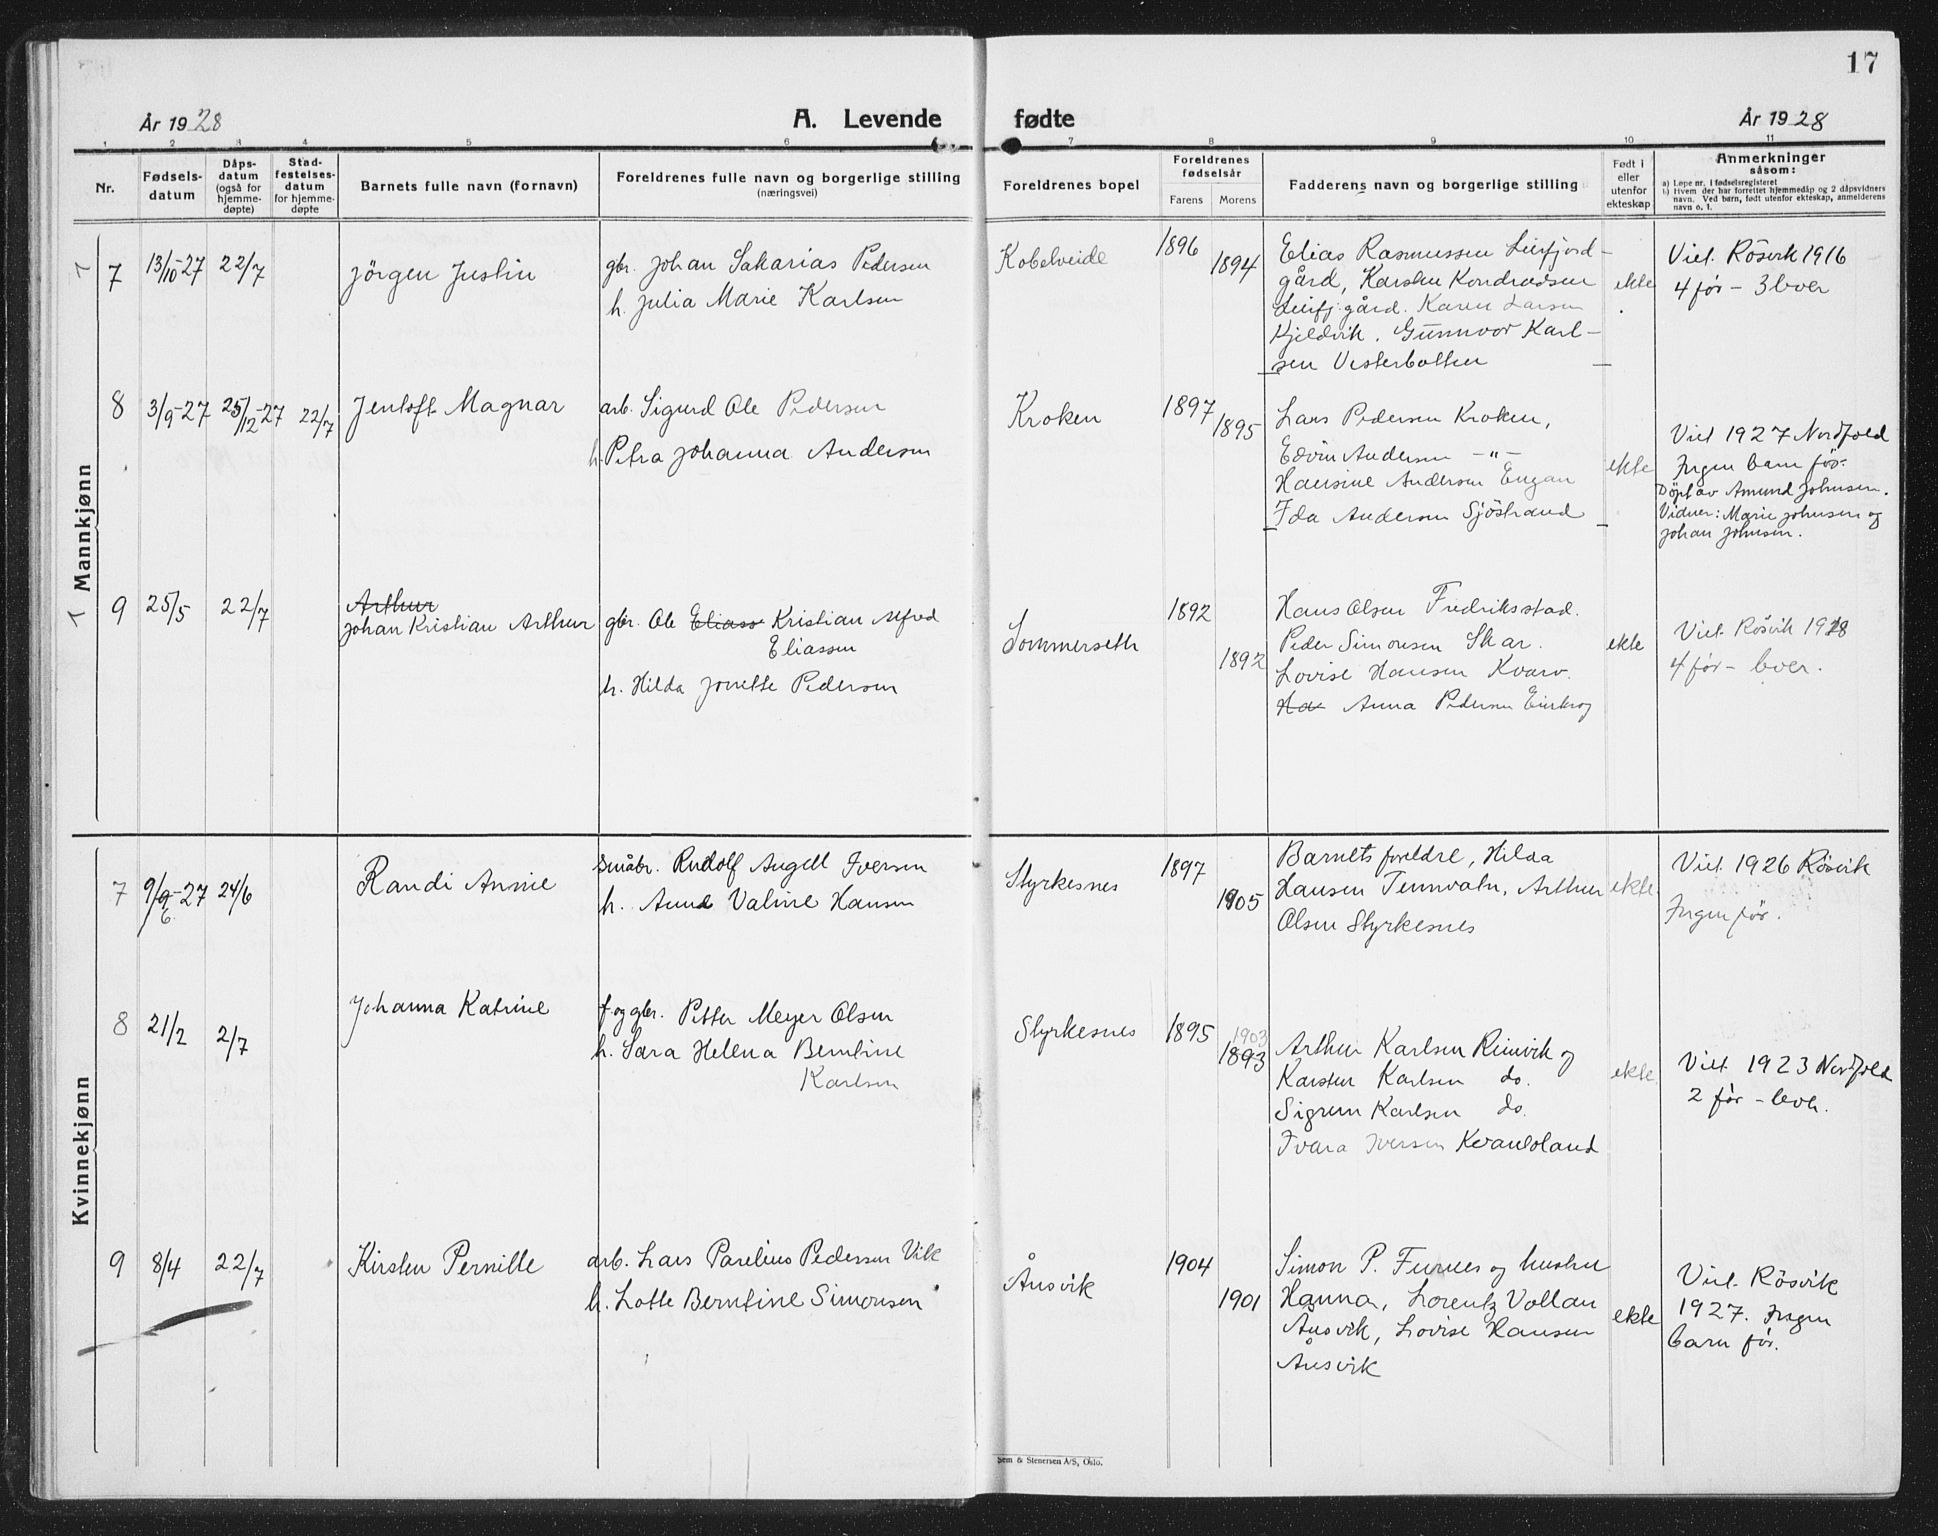 17
År 1928
A. Levende fødte
År 1928
1 2 3 4 5 6 7 8 9 10 11
Nr.
Fødsels-
datum
Dåps-
datum
(også for
hjemme-
døpte)
Stad-
festelses-
datum
for hjemme-
døpte
Barnets fulle navn (fornavn)
Foreldrenes fulle navn og borgerlige stilling
(næringsvei)
Foreldrenes bopel
Foreldrenes
fødselsår
Farens Morens
Fadderens navn og borgerlig stilling
Født i
eller
utenfor
ekteskap
Anmerkninger
såsom:
a) Løpe nr. i fødselsregisteret
b) Hvem der har forrettet hjemmedåp og 2 dåpsvidners
navn. Ved barn, født utenfor ekteskap, anmelderens
navn o. l.
Mannkjønn
7 13/10-27 22/7
Jörgen Justin
gbr. Johan Sakarias Pedersen
h. Julia Marie Karlsen
Kobelveide
1896
1894
Elias Rasmussen Leirfjord-
gård, Karsten Kondradsen
Leirfj.gård. Karen Larsen
Kjeldvik. Gunnvor Karl-
sen Vesterbotten
ekte
Viet Rösvik 1916
4 før - 3 lever
8 3/9-27 25/12-27 22/7
Jentoft Magnar
arb. Sigurd Ole Pedersen
h. Petra Johanna Andersen
Kroken
1897
1895
Lars Pedersen Kroken,
Edvin Andersen -"-
Hansine Andersen Engan
Ida Andersen Sjöstrand
ekte
Viet 1927 Nordfold
Ingen barn før.
Döpt av Amund Johnsen.
Vidner: Marie Johnsen og
Johan Johnsen.
9 25/5 22/7
Arthur
Johan Kristian Arthur
gbr. Ole Eliass Kristian Alfred
Eliassen
h. Hilda Jonette Pedersen
Sommerseth
1892
1892
Hans Olsen Fredriksstad.
Peder Simonsen Skar.
Lovise Hansen Kvarv.
Ha Anna Pedersen
ekte
Viet Rösvik 1918
4 før - lever.
Kvinnekjønn
7 9/6-27 24/6
Randi Annie
småbr. Rudolf Angell Iversen
h. Anna Valine Hansen
Styrkesnes
1897
1905
Barnets foreldre, Hilda
Hansen Tennvatn, Arthur
Olsen Styrkesnes
ekte
Viet 1926 Rösvik
Ingen før.
8 21/2 2/7
Johanna Katrine
f og gbr. Petter Meyer Olsen
h. Sara Helena Berntine
Karlsen
Styrkesnes
1895
1903
1893
Arthur Karlsen Reinvik og
Karsten Karlsen do.
Sigrun Karlsen do.
Ivara Iversen Kvandoland
ekte
Viet 1923 Nordfold
2 før - lever.
9 8/4 22/7
Kirsten Pernille
arb. Lars Parelius Pedersen Vik
h. Lotte Berntine Simonsen
Ånsvik
1904
1901
Simon P. Furnes og hustru
Hanna, Lorentz Vollan
Ånsvik, Lovise Hansen
Ånsvik
ekte
Viet Rösvik
1927. Ingen
barn før.
Sem & Stenersen A/S, Oslo.